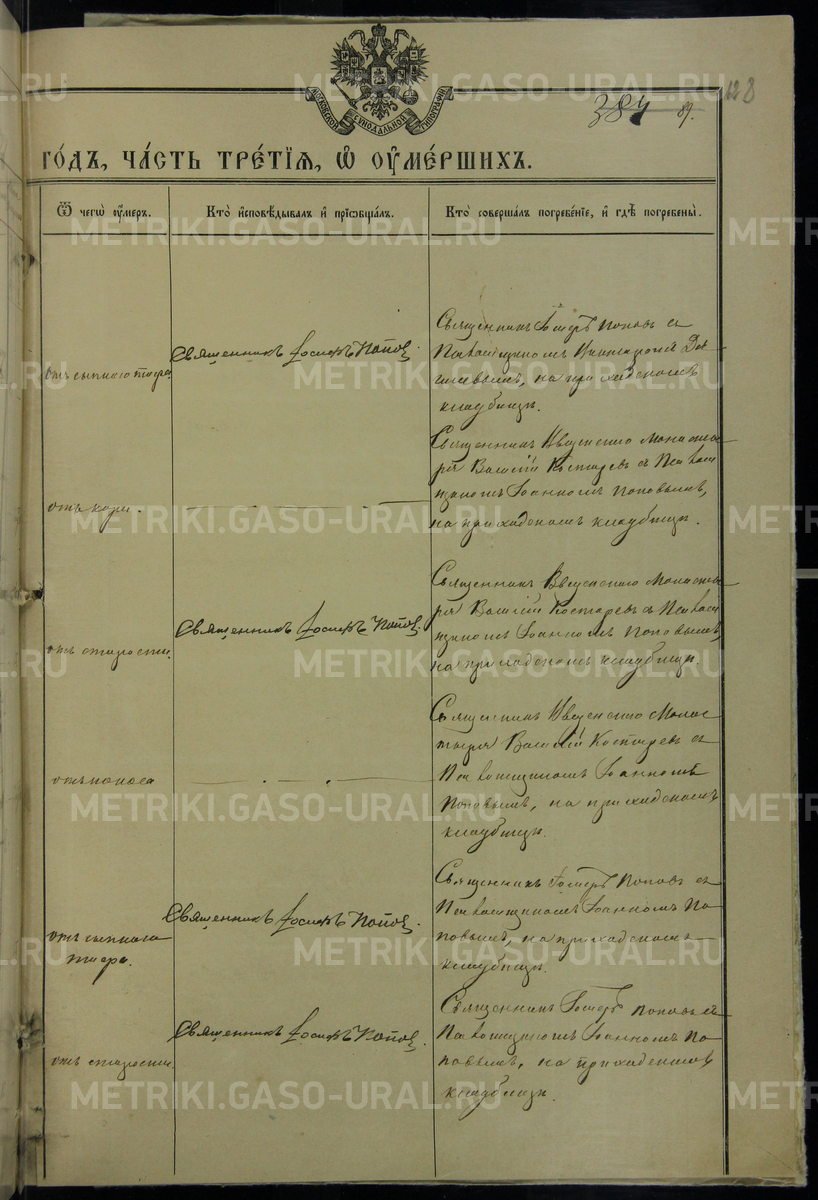 128
384 89.
МОСКОВСКОЙ СѴНОДАЛЬНОЙ ТИПОГРАФІИ
ГО́ДЪ, ЧА́СТЬ ТРЕ́ТІѦ, Ѽ ОУ҆МЕ́РШИХЪ.
Ѿ чегѡ̀ оу҆́меръ.
Кто̀ и҆сповѣ́дывалъ и҆ прїѡбща́лъ.
Кто̀ соверша́лъ погребе́нїе, и҆ гдѣ̀ погребены̀.
отъ сыпного тифа.
Священникъ Іосифъ Попов.
Священникъ Іосифъ Поповъ съ
Псаломщикомъ
на приходскомъ
кладбищѣ.
отъ кори.
Священникъ Введенско Монасты-
ря Василій Костаревъ съ Псалом-
щикомъ Іоанномъ Поповымъ,
на приходскомъ кладбищѣ.
отъ старости.
Священникъ Іосифъ Попов.
Священникъ Введенско Монасты-
ря Василій Костаревъ съ Псалом-
щикомъ Іоанномъ Поповымъ,
на приходскомъ кладбищѣ.
отъ поноса
Священникъ Введенско Монас-
тыря Василій Костаревъ съ
Псаломщикомъ Іоанномъ
Поповымъ, на приходскомъ
кладбищѣ.
отъ сыпного
тифа.
Священникъ Іосифъ Попов.
Священникъ Іосифъ Поповъ съ
Псаломщикомъ Іоанномъ По-
повымъ, на приходскомъ
кладбищѣ.
отъ старости.
Священникъ Іосифъ Попов.
Священникъ Іосифъ Поповъ съ
Псаломщикомъ Іоанномъ По-
повымъ, на приходскомъ
кладбищѣ.
METRIKI.GASO-URAL.RU